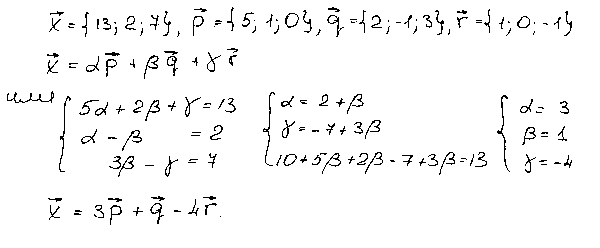 x⃗ = {13; 2; 7}, p⃗ = {5; 1; 0}, q⃗ = {2; -1; 3}, r⃗ = {1; 0; -1}
x⃗ = αp⃗ + βq⃗ + γr⃗
или { 5α + 2β + γ = 13 { α = 2 + β { α = 3
α - β = 2 γ = -7 + 3β β = 1
3β - γ = 7 10 + 5β + 2β - 7 + 3β = 13 γ = -4
x⃗ = 3p⃗ + q⃗ - 4r⃗.